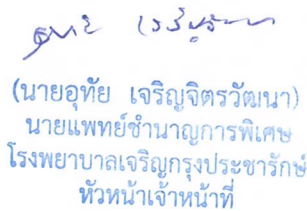 (นายอุทัย เจริญจิตรวัฒนา)
นายแพทย์ชำนาญการพิเศษ
โรงพยาบาลเจริญกรุงประชารักษ์
หัวหน้าเจ้าหน้าที่